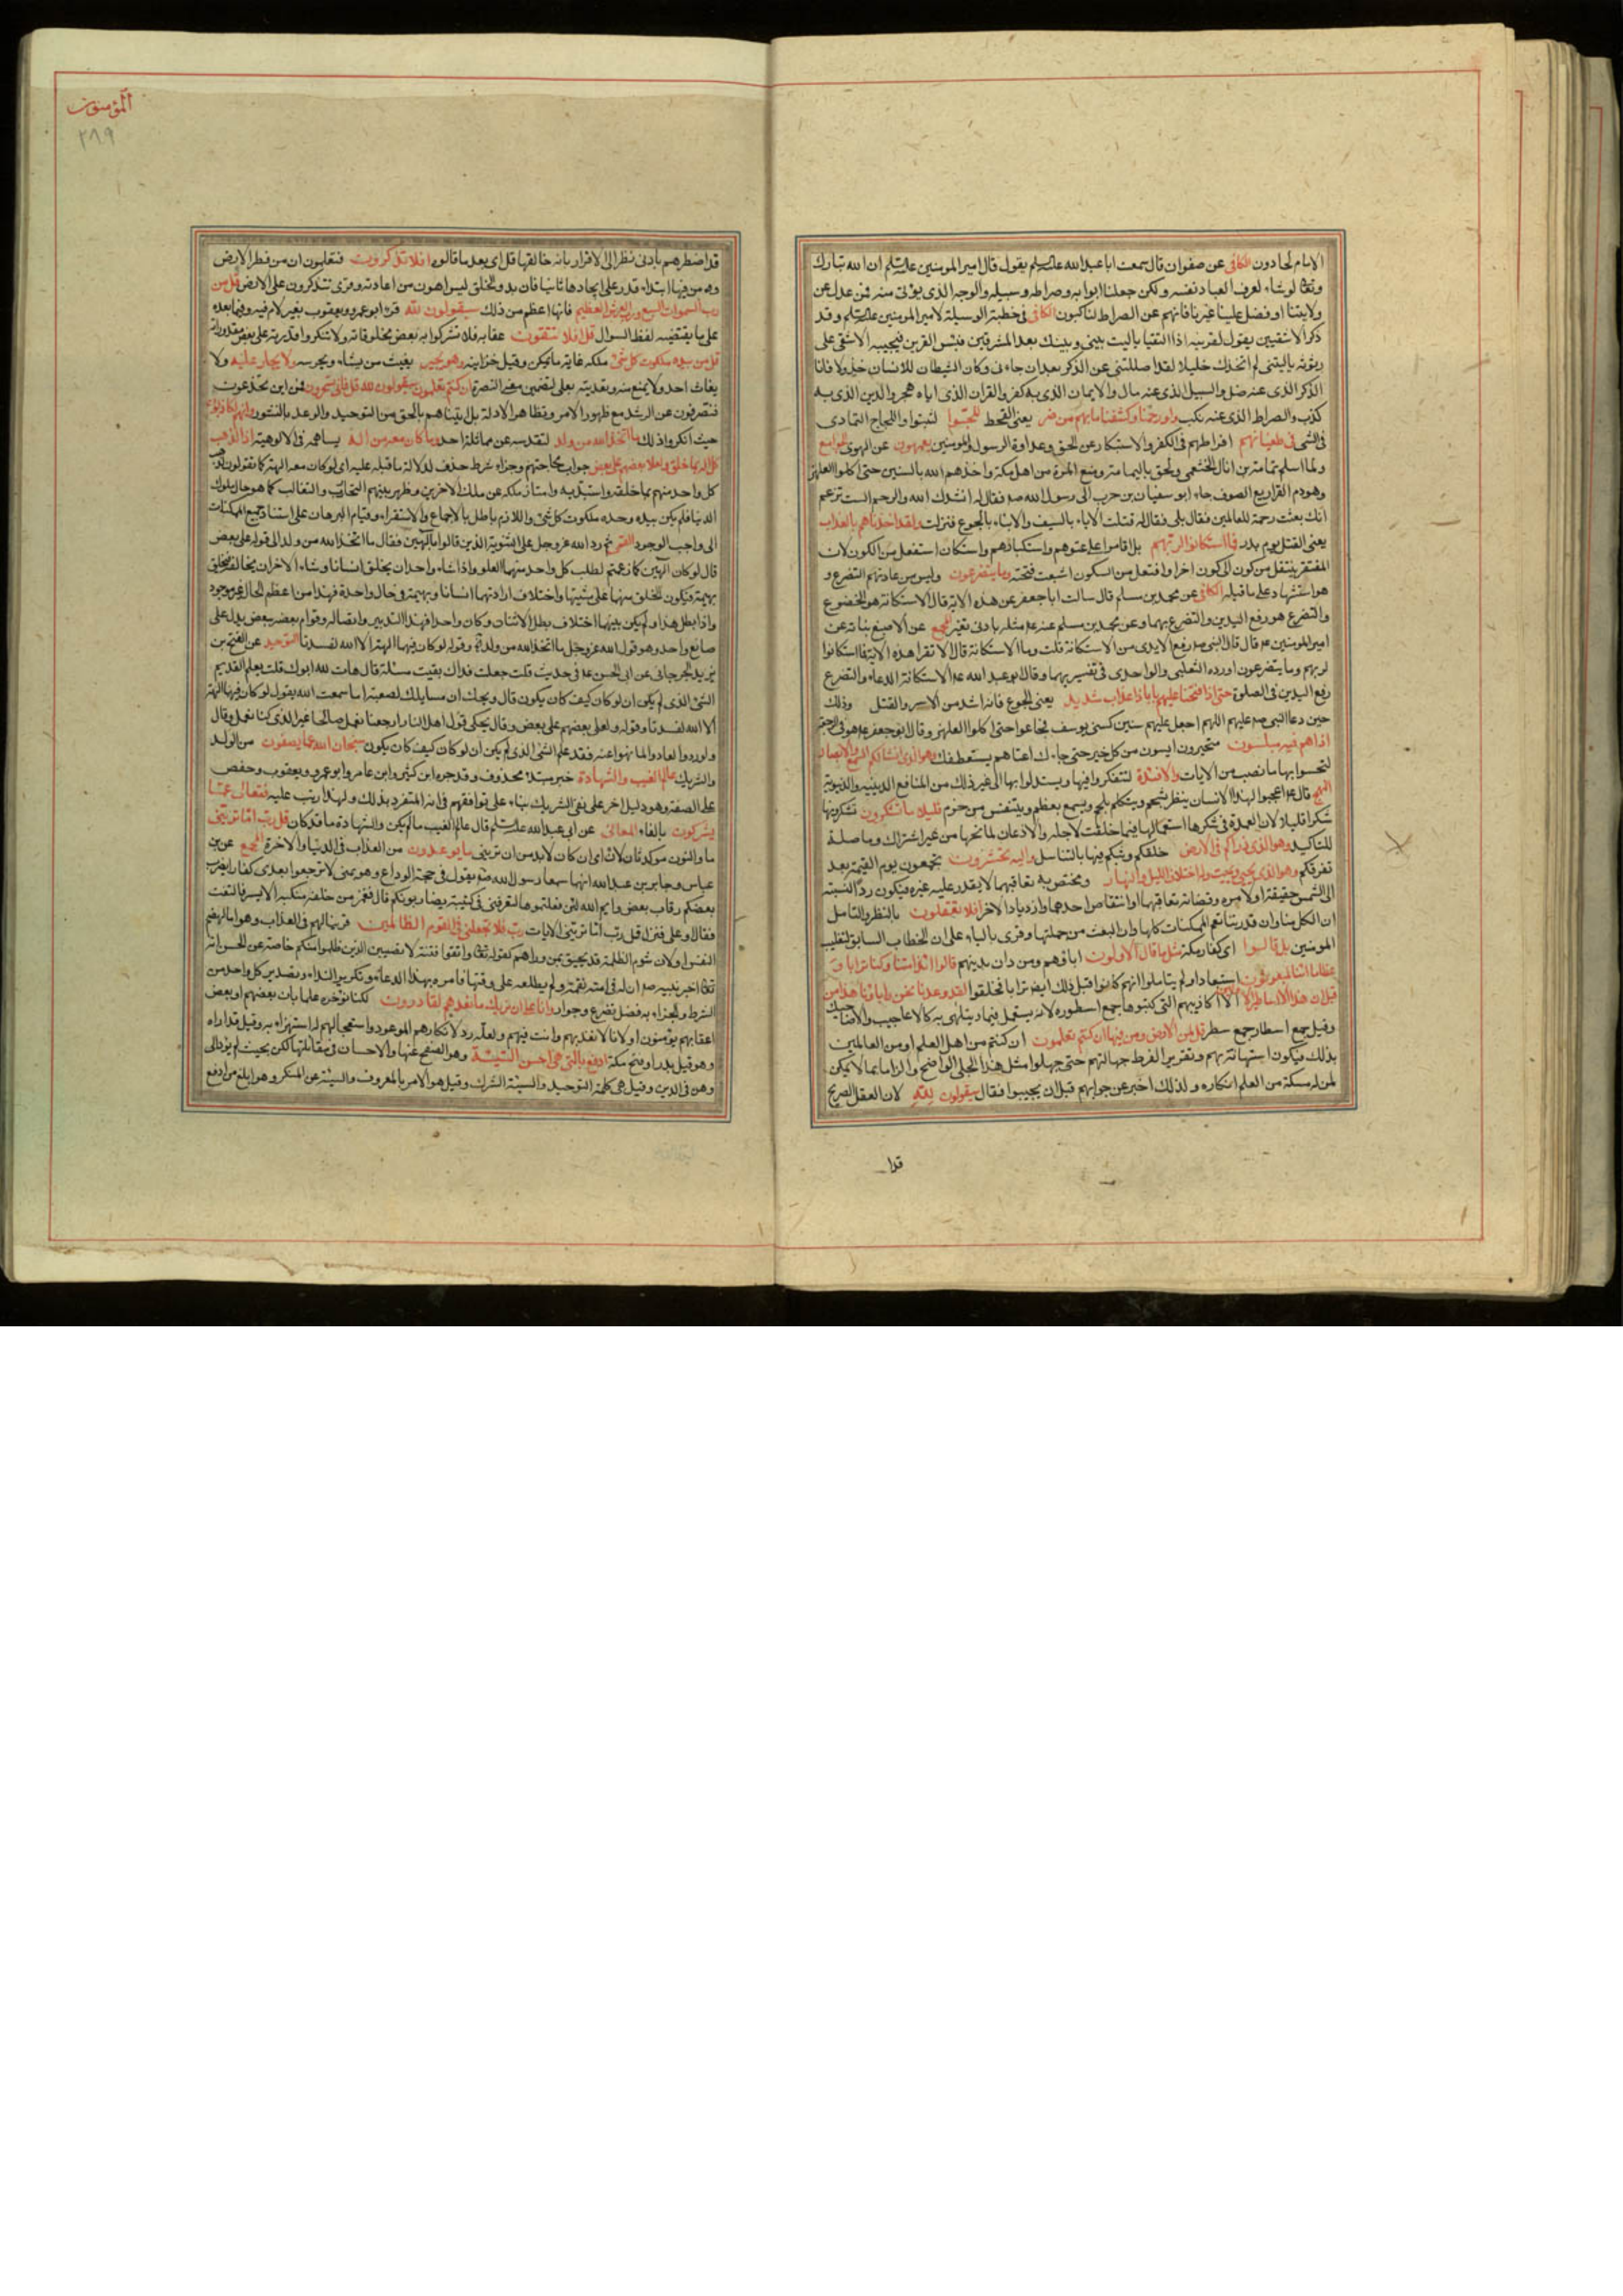 الامام لحادون الكافى عن صفوان قال سمعت ابا عبدالله علیه‌السلم يقول قال امير المومنين علیه‌السلم ان الله تبارك
وتعا لوشاء لعرف العباد نفسه ولكن جعلنا ابوابه وصراطه وسبيله والوجه الذى يوتى منه فمن عدل عن
ولايتنا او فضل علينا غيرنا فانهم عن الصراط لناكبون الكافى فى خطبة الوسيلة لامير المومنين علیه‌السلم وقد
ذكر الاشقيين يقول لقرينه اذا التقيا ياليت بينى وبينك بعد المشرقين فبئس القرين فيجيبه الاشقى على
رثوثه ياليتنى لم اتخذك خليلا لقد اضللتنى عن الذكر بعد ان جاءنى وكان الشيطان للانسان خذولا فانا
الذكر الذى عنه ضل والسبيل الذى عنه مال والايمان الذى به كفر والقران الذى اياه هجر والدين الذى به
كذب والصراط الذى عنه نكب ولو رحمناهم وكشفنا ما بهم من ضر يعنى القحط للجّوا لثبتوا واللجاج التمادى
فى الشى فى طغيانهم افراطهم فى الكفر والاستكبار عن الحق وعداوة الرسول والمومنين يعمهون عن الهدى
ولما اسلم ثمامة بن اثال الحنفى ولحق باليمامة ومنع الميرة من اهل مكة واخذهم الله بالسنين حتى اكلوا العلهز
وهو دم القراد مع الصوف جاء ابو سفيان بن حرب الى رسول الله صم فقال له انشدك الله والرحم الست تزعم
انك بعثت رحمة للعالمين فقال بلى فقال له قتلت الاباء بالسيف والابناء بالجوع فنزلت ولقد اخذناهم بالعذاب
يعنى القتل يوم بدر فما استكانوا لربهم بل اقاموا على عتوهم واستكبارهم واستكان استفعل من الكون لان
المفتقر ينتقل من كون الى كون اخر او افتعل من السكون اشبعت فتحته وما يتضرعون وليس من عادتهم التضرع و
هو استشهاد على ما قبله الكافى عن محمد بن مسلم قال سالت ابا جعفر عن هذه الاية قال الاستكانة هو الخضوع
والتضرع هو رفع اليدين والتضرع بهما وعن محمد بن مسلم عنه ع مثله بادنى تغيير المجمع عن الاصبغ بن نباتة عن
امير المومنين ع قال قال النبى صم رفع الايدى من الاستكانة قلت وما الاستكانة قال الا تقرا هذه الاية فما استكانوا
لربهم وما يتضرعون اورده الثعلبى والواحدى فى تفسيريهما وقال ابو عبد الله ع الاستكانة الدعاء والتضرع
رفع اليدين فى الصلوة حتى اذا فتحنا عليهم بابا ذا عذاب شديد يعنى الجوع فانه اشد من الاسر والقتل وذلك
حين دعا النبى صم عليهم اللهم اجعل عليهم سنين كسنى يوسف فجاعوا حتى اكلوا العلهز وقال ابو جعفر ع هو فى الرجعة
اذا هم فيه مبلسون متحيرون ايسون من كل خير حتى جاءك اعتاهم يستعطفك وهو الذى انشا لكم السمع والابصار
لتحسوا بها ما نصب من الايات والافئدة لتتفكروا فيها وتستدلوا بها الى غير ذلك من المنافع الدينيه والدنيوية
النهج قال ع اعجبوا لهذا الانسان ينظر بشحم ويتكلم بلحم ويسمع بعظم ويتنفس من خرم قليلا ما تشكرون تشكرونها
شكرا قليلا لان العمدة فى شكرها استعمالها فيما خلقت لاجله والاذعان لمانحها من غير اشتراك وما صلة
للتاكيد وهو الذى ذراكم فى الارض خلقكم وبثكم فيها بالتناسل واليه تحشرون تجمعون يوم القيمة بعد
تفرقكم وهو الذى يحيى ويميت وله اختلاف الليل والنهار ومختص به تعاقبهما لا يقدر عليه غيره فيكون ردّ النسبته
الى الشمس حقيقة او لامره وقضائه تعاقبهما او انتقاص احدهما وازدياد الاخر افلا تعقلون بالنظر والتامل
ان الكل منا وان قدرتنا تعم الممكنات كلها وان البعث من جملتها وقرى بالياء على ان الخطاب السابق لتغليب
المومنين بل قالوا اى كفار مكة مثل ما قال الاولون اباؤهم ومن دان بدينهم قالوا ائذا متنا وكنا ترابا و
عظاما ائنا لمبعوثون استبعادا ولم يتاملوا انهم كانوا قبل ذلك ايضا ترابا فخلقوا لقد وعدنا نحن واباؤنا هذا من
قبل ان هذا الا اساطير الاولين الا اكاذيبهم التى كتبوها جمع اسطوره لانه يستعمل فيما يتلهى به كالاعاجيب والاضاحيك
وقيل جمع اسطار جمع سطر قل لمن الارض ومن فيها ان كنتم تعلمون ان كنتم من اهل العلم او من العالمين
بذلك فيكون استهانة بهم وتقريرا لفرط جهالتهم حتى جهلوا مثل هذا الجلى الواضح والزاما بما لا يمكن
لمن له مسكة من العلم انكاره ولذلك اخبر عن جوابهم قبل ان يجيبوا فقال سيقولون لله لان العقل الصريح
قدا
المؤمنون
٢٨٩
قد اضطرهم بادنى نظر الى الاقرار بانه خالقها قل اى بعد ما قالوه افلا تذكرون فتعلمون ان من فطر الارض
ومن فيها ابتداء قدر على ايجادها ثانيا فان بدو الخلق ليس اهون من اعادته وقرى تتذكرون على الاصل قل من
رب السموات السبع ورب العرش العظيم فانها اعظم من ذلك سيقولون لله قرء ابو عمرو ويعقوب بغير لام فيه وفيما بعده
على ما يقتضيه لفظ السوال قل افلا تتقون عقابه فلا تشركوا به بعض مخلوقاته ولا تنكروا قدرته على بعض مقدوراته
قل من بيده ملكوت كل شئ ملكه غاية ما يمكن وقيل خزاينه وهو يجير يغيث من يشاء ويحرسه ولا يجار عليه ولا
يغاث احد ولا يمنع منه وتعديته بعلى لتضمين معنى النصرة ان كنتم تعلمون سيقولون لله قل فانى تسحرون فمن اين تخدعون
فتصرفون عن الرشد مع ظهور الامر وتظاهر الادلة بل اتيناهم بالحق من التوحيد والوعد بالنشور وانهم لكاذبون
حيث انكروا ذلك ما اتخذ الله من ولد لتقدسه عن مماثلة احد وما كان معه من اله يساهمه فى الالوهية اذا لذهب
كل اله بما خلق ولعلا بعضهم على بعض جواب محاجتهم وجزاء شرط حذف لدلالة ما قبله عليه اى لو كان معه الهة كما تقولون لذهب
كل واحد منهم بما خلقه واستبد به وامتاز ملكه عن ملك الاخرين وظهر بينهم التحارب والتغالب كما هو حال ملوك
الدنيا فلم يكن بيده وحده ملكوت كل شئ واللازم باطل بالاجماع والاستقراء وقيام البرهان على استناد جميع الممكنات
الى واجب الوجود القمى ثم رد الله عز وجل على الثنوية الذين قالوا بالهين فقال ما اتخذ الله من ولد الى قوله على بعض
قال لو كان الهين كما زعمتم لطلب كل واحد منهما العلو واذا شاء واحد ان يخلق انسانا وشاء الاخر ان يخالفه فيخلق
بهيمة فيكون الخلق منهما على مشيتهما واختلاف ارادتهما انسانا وبهيمة فى حال واحدة فهذا من اعظم المحال غير موجود
واذا بطل هذا ولم يكن بينهما اختلاف بطل الاثنان وكان واحدا فهذا التدبير واتصاله وقوام بعضه ببعض يدل على
صانع واحد وهو قول الله عز وجل ما اتخذ الله من ولد الاية وقوله لو كان فيهما الهة الا الله لفسدتا التوحيد عن الفتح بن
يزيد الجرجانى عن ابى الحسن ع فى حديث قلت جعلت فداك بقيت مسئلة قال هات لله ابوك قلت يعلم القديم
الشئ الذى لم يكن ان لو كان كيف كان يكون قال ويحك ان مسايلك لصعبة اما سمعت الله يقول لو كان فيهما الهة
الا الله لفسدتا وقوله ولعلى بعضهم على بعض وقال يحكى قول اهل النار ارجعنا نعمل صالحا غير الذى كنا نعمل وقال
ولو ردوا لعادوا لما نهوا عنه فقد علم الشئ الذى لم يكن ان لو كان كيف كان يكون سبحان الله عما يصفون من الولد
والشريك عالم الغيب والشهادة خبر مبتدا محذوف وقد جره ابن كثير وابن عامر وابو عمرو ويعقوب وحفص
على الصفة وهو دليل اخر على نفى الشريك بناء على توافقهم فى انه المتفرد بذلك ولهذا رتب عليه فتعالى عمّا
يشركون بالفاء المعانى عن ابى عبدالله علیه‌السلم قال عالم الغيب ما لم يكن والشهادة ما قد كان قل رب اما ترينى
ما والنون موكدتان لان اى ان كان لابد من ان ترينى ما يوعدون من العذاب فى الدنيا والاخرة المجمع عن بن
عباس وجابر بن عبدالله انهما سمعا رسول الله صم يقول فى حجة الوداع وهو بمنى لا ترجعوا بعدى كفارا يضرب
بعضكم رقاب بعض وايم الله لئن فعلتموها لتعرفنى فى كتيبة يضاربونكم قال فغمز من خلفه منكبه الايسر فالتفت
فقال او على فنزل قل رب اما ترينى الايات رب فلا تجعلنى فى القوم الظالمين قرينا لهم فى العذاب وهو اما لهضم
النفس او لان شوم الظلمة قد يحيق بمن وراهم كقوله تعا واتقوا فتنة لا تصيبن الذين ظلموا منكم خاصة عن الحسن انه
تعا اخبر نبيه صم ان له فى امته نقمة ولم يطلعه على وقتها فامره بهذا الدعاء وتكرير النداء وتصدير كل واحد من
الشرط والجزاء به فضل تضرع وجوار وانا على ان نريك ما نعدهم لقادرون لكنا نوخره علما بان بعضهم او بعض
اعقابهم يومنون او لانا لا نعذبهم وانت فيهم ولعله رد لانكارهم الموعود واستعجالهم له استهزاء به وقيل قد اراه
وهو قيل بدر او فتح مكة ادفع بالتى هى احسن السيئة وهو الصفح عنها والاحسان فى مقابلتها لكن بحيث لم يؤد الى
وهن فى الدين وقيل هى كلمة التوحيد والسيئة الشرك وقيل هو الامر بالمعروف والسيئة عن المنكر وهو ابلغ من ادفع